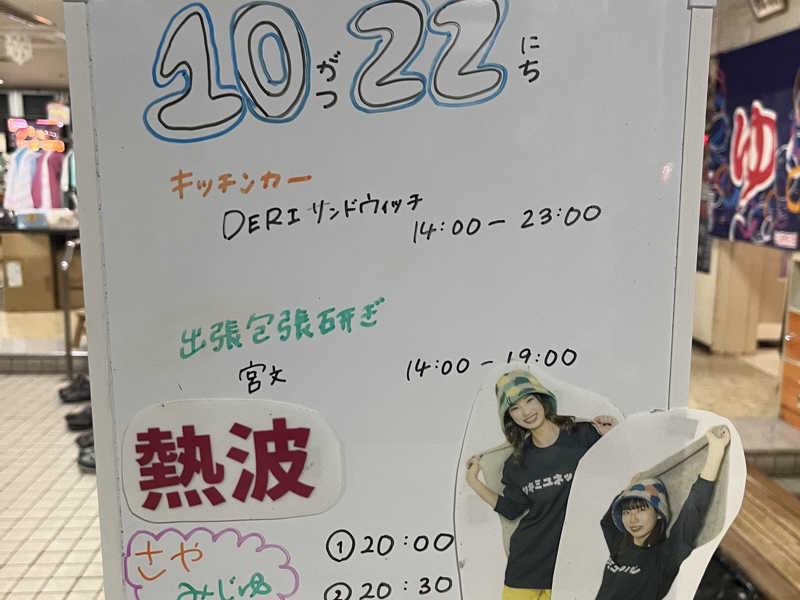 10がつ22にち
キッチンカー
DERI サンドウィッチ
14:00 - 23:00
出張包張研ぎ
宮文
14:00 - 19:00
熱波
さや
みじゅ
① 20:00
② 20:30
ゆ